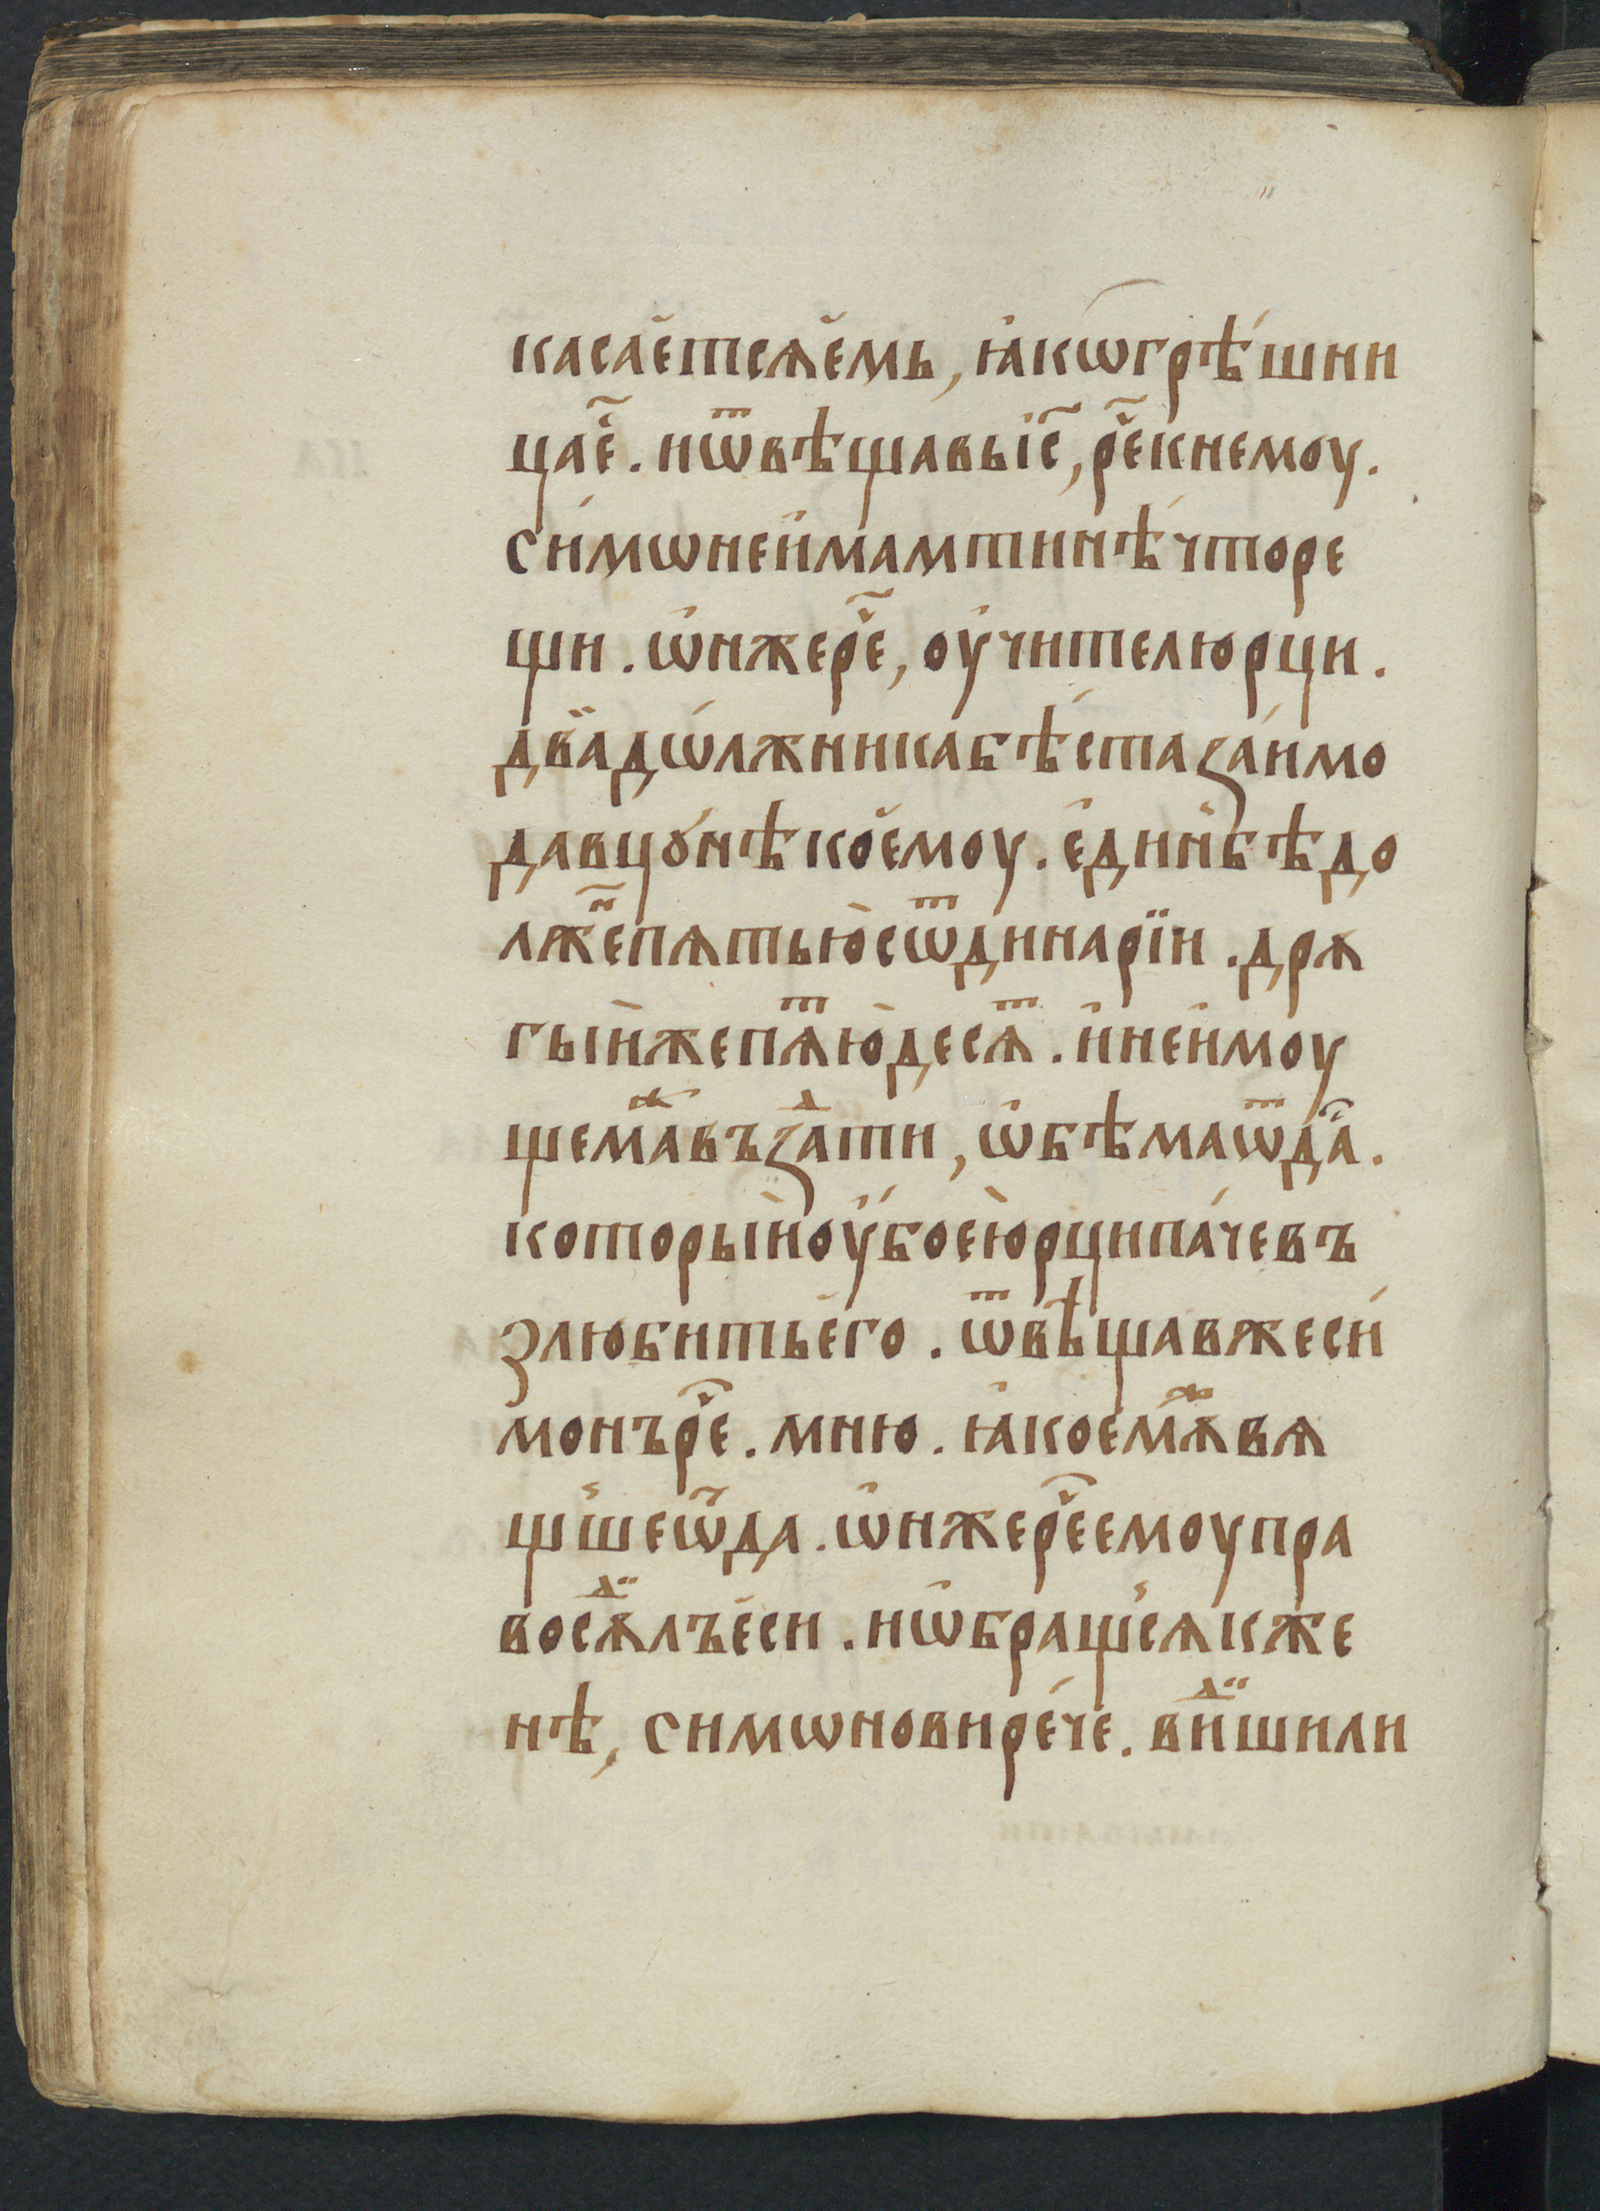 касае́тсѧе́мь, ꙗ҆кѡгрѣ́шни
цае҆̃. иѿвѣщавьїс҃, ре҃кнемоу.
си́мѡнеи҆мамтинѣ́чторе
щи. ѡ҆нжере҃, оу҆чителюрци.
два̀дѡ́лжникабѣ́стаꙁа́имо
давцꙋ́нѣкое́моу. е҆дин̾бѣдо
лжⷩ҇епѧтью̀сѿдинарїи. дрꙋ
гы́йжепѧⷮю̀десѧⷮ. и҆неи҆моу
щемаⷤвъꙁдⷣати, ѡ҆бѣмаѿда̀.
которы́йоу҆боею̀рципа́чевъ
злюбитье҆го. ѿвѣщавжеси́
монъре҃. мню. ꙗ҆коемꙋⷤвѧ
щ́шеѿда. ѡ҆нжере҃емоупра
восꙋⷣлъе҆си. иѡ҆бращ́сѧкже
нѣ, симѡновирече́. виⷣшили